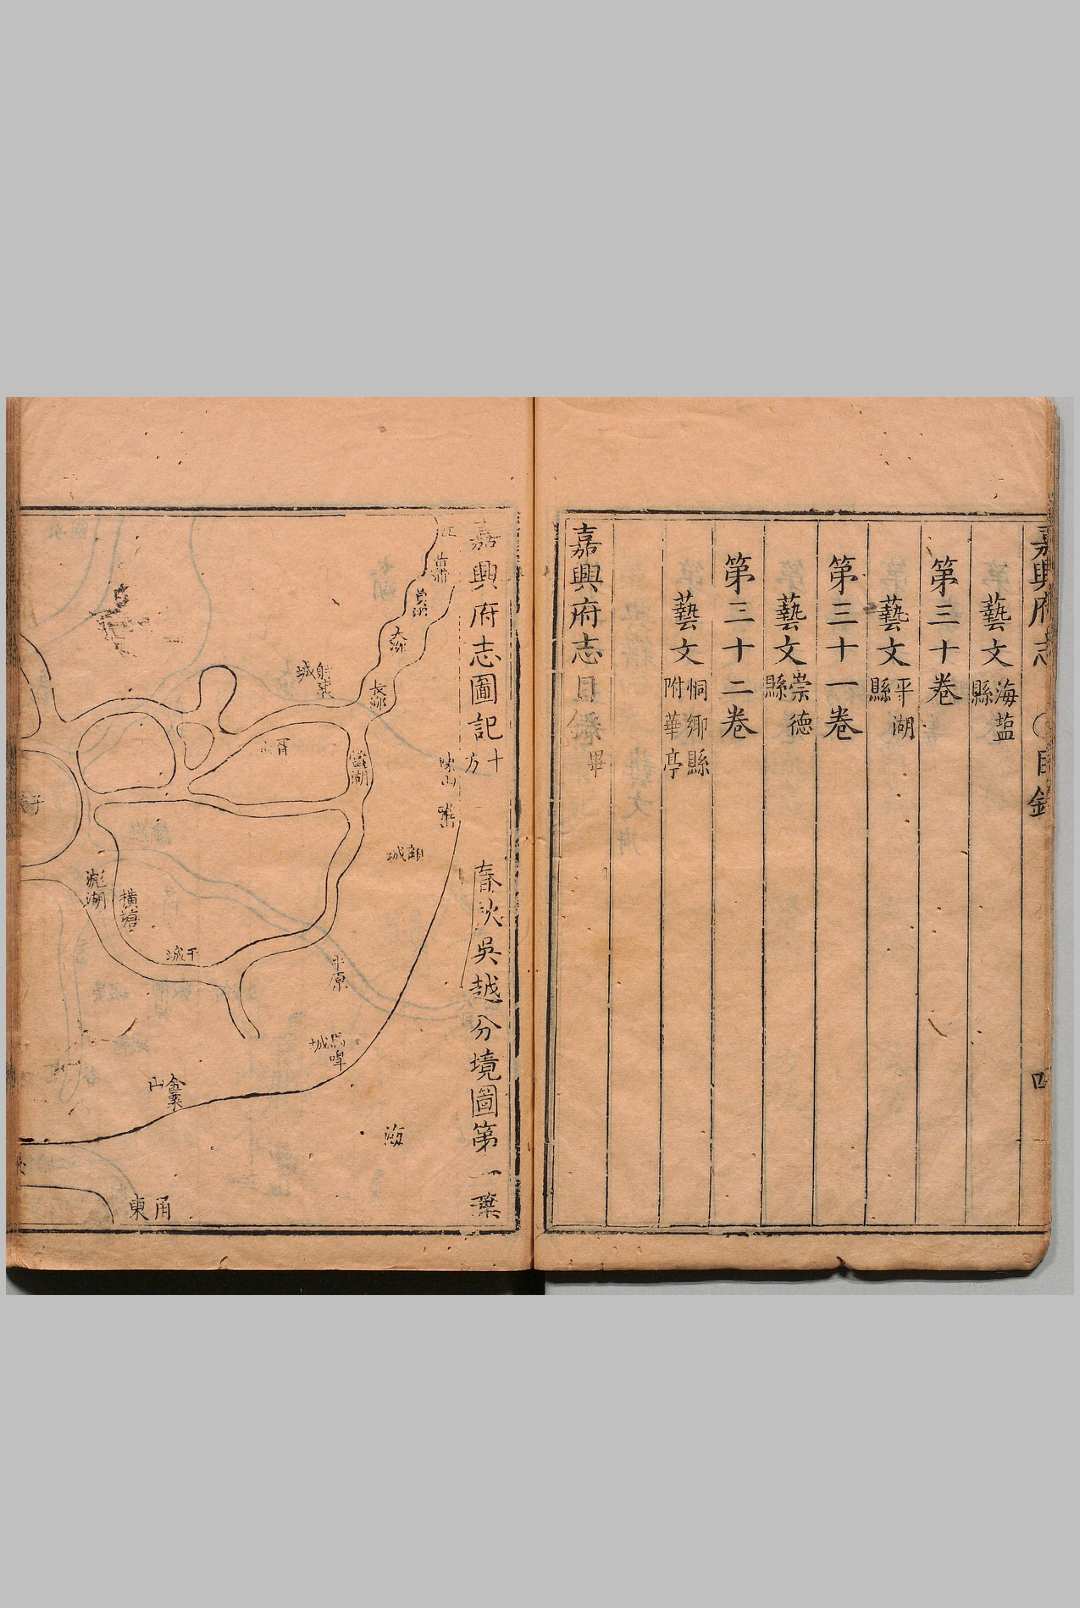 嘉興府志 目錄 四
藝文 海塩縣
第三十卷
藝文 平湖縣
第三十一卷
藝文 崇德縣
第三十二卷
藝文 桐鄉縣 附華亭
嘉興府志目錄畢
嘉興府志圖記 十方 春秋吳越分境圖第一葉
江
長泖
大泖
射襄城
胥山
當湖
陳山
胡城
彪湖
橫塘
平原
干城
馬嘷城
金粟山
海
甬東